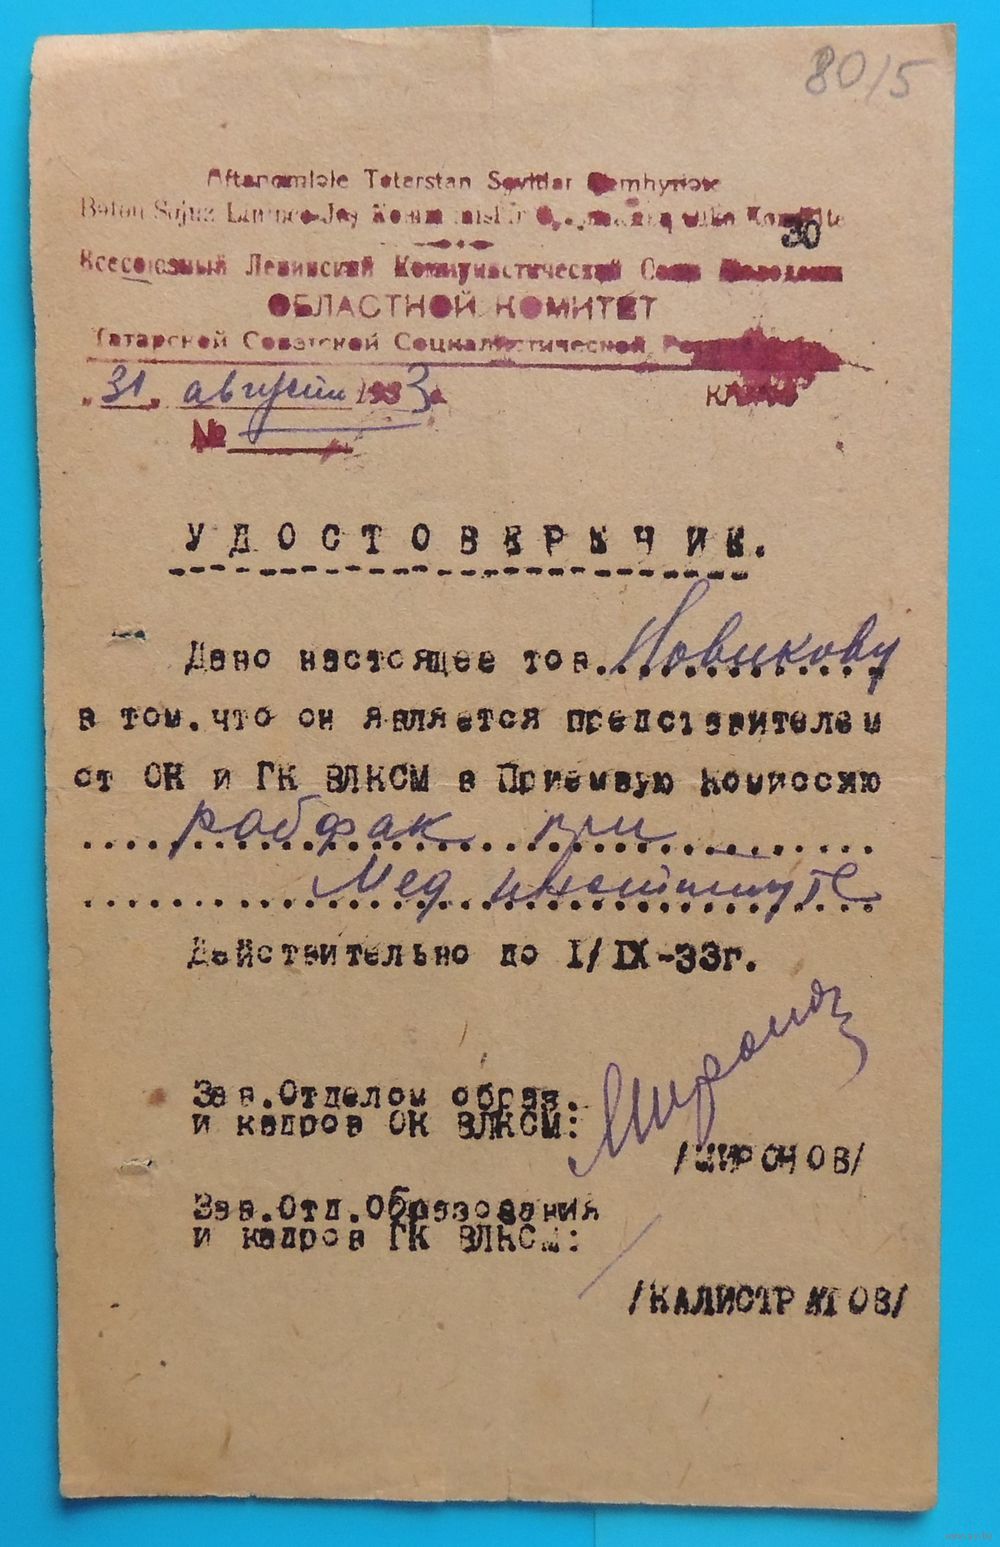 8015
Aftanomiole Tatarstan
Всесоюзный Ленинский Коммунистический Союз Молодежи
30
ОБЛАСТНОЙ КОМИТЕТ
Татарской Советской Социалистической
„31" августа 1933
№
УДОСТОВЕРЕНИЕ.
Дано настоящее тов. Новикову
в том.что он является представителем
от ОК и ГК ВЛКСМ в Приемную Комиссию
рабфак при
Мед институте
Действительно до I/IX-33г.
Зав.Отделом образ.
и кадров ОК ВЛКСМ:
Миронов
/МИРОНОВ/
Зав.Отд.Образования
и кадров ГК ВЛКСМ:
/КАЛИСТРАТОВ/